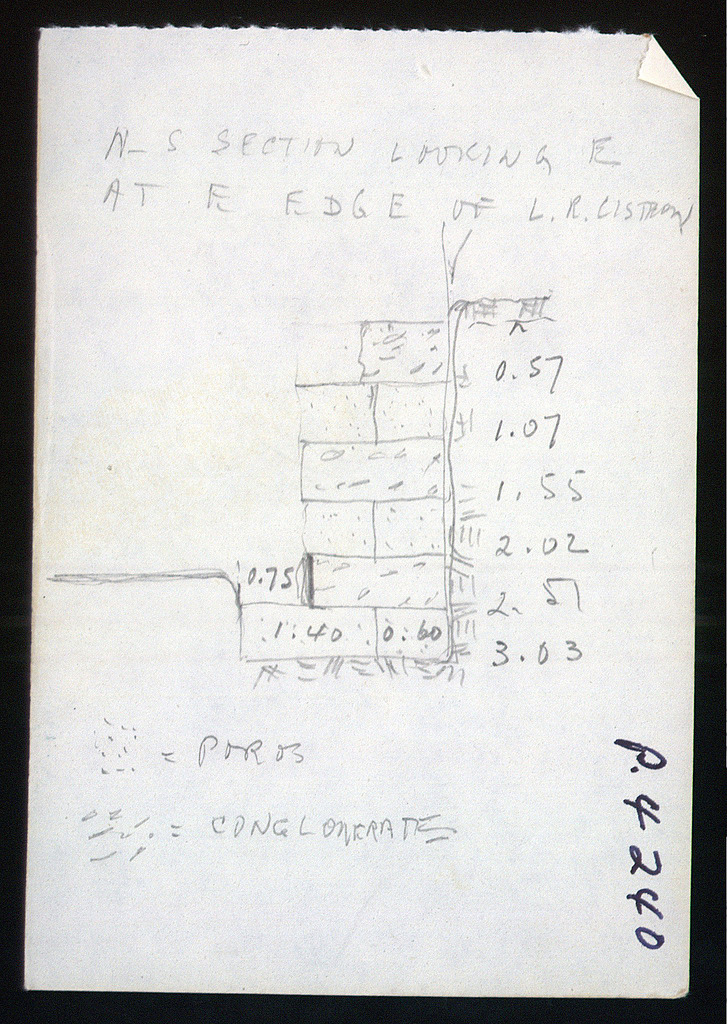 N-S SECTION LOOKING E
AT E EDGE OF L.R. CISTERN
0.57
1.07
1.55
2.02
0.75
2.51
1.40 0.60
3.03
= POROS
= CONGLOMERATE
P. 4240